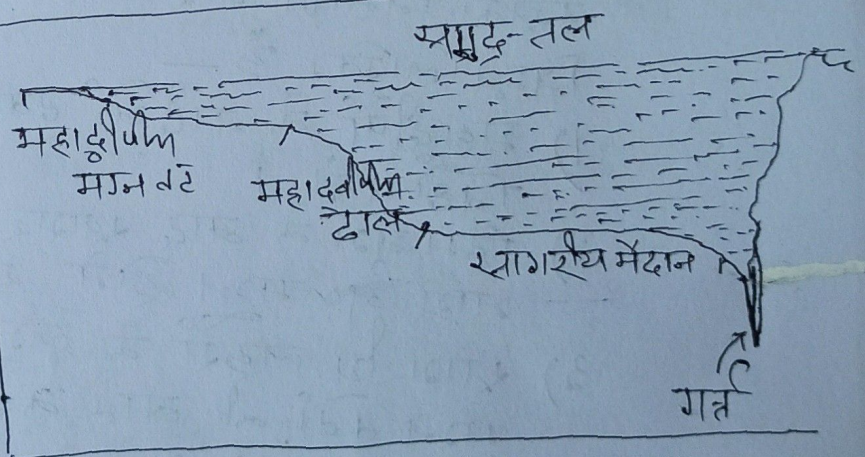 समुद्र-तल
महाद्वीपीय
मग्न तट
महादवीपीय
ढाल
सागरीय मैदान
गर्त्त